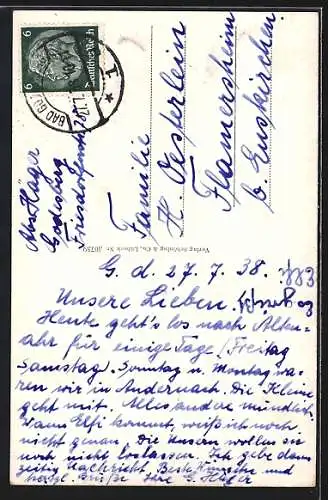 6
6
Deutsches Reich
BAD GO
27.7.
1
Abs. Häger
Godesberg
Familie
H. Oesterlein
Flamersheim
b. Euskirchen
Verlag Schöning & Co., Lübeck Nr.
G. d. 27. 7. 38.
Unsere Lieben.
Heute geht's los nach Alten-
ahr für einige Tage (Freitag
Samstag). Sonntag u. Montag wa-
ren wir in Andernach. Die Kleine
geht mit. Alles andere mündlich.
Wann Elfi kommt, weiß ich noch
nicht genau, Die Unsern wollen sie
noch nicht loslassen. Ich gebe dann
zeitig Nachricht. Beste Wünsche und
herzl. Grüße Ihre G. Häger